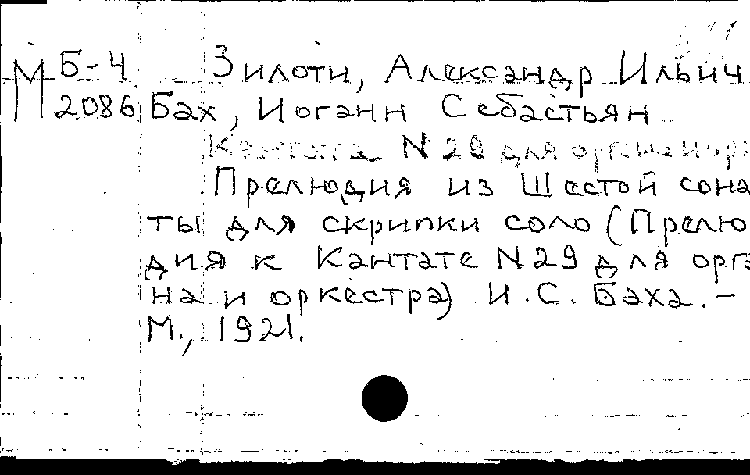 М Б-4 Зилоти, Александр Ильич
2086 Бах, Иоганн Себастьян
Кантата N 29 для органа и орк
Прелюдия из Шестой сона
ты для скрипки соло (Прелю
дия к Кантате N 29 для орга
на и оркестра) И. С. Баха. -
М., 1921.